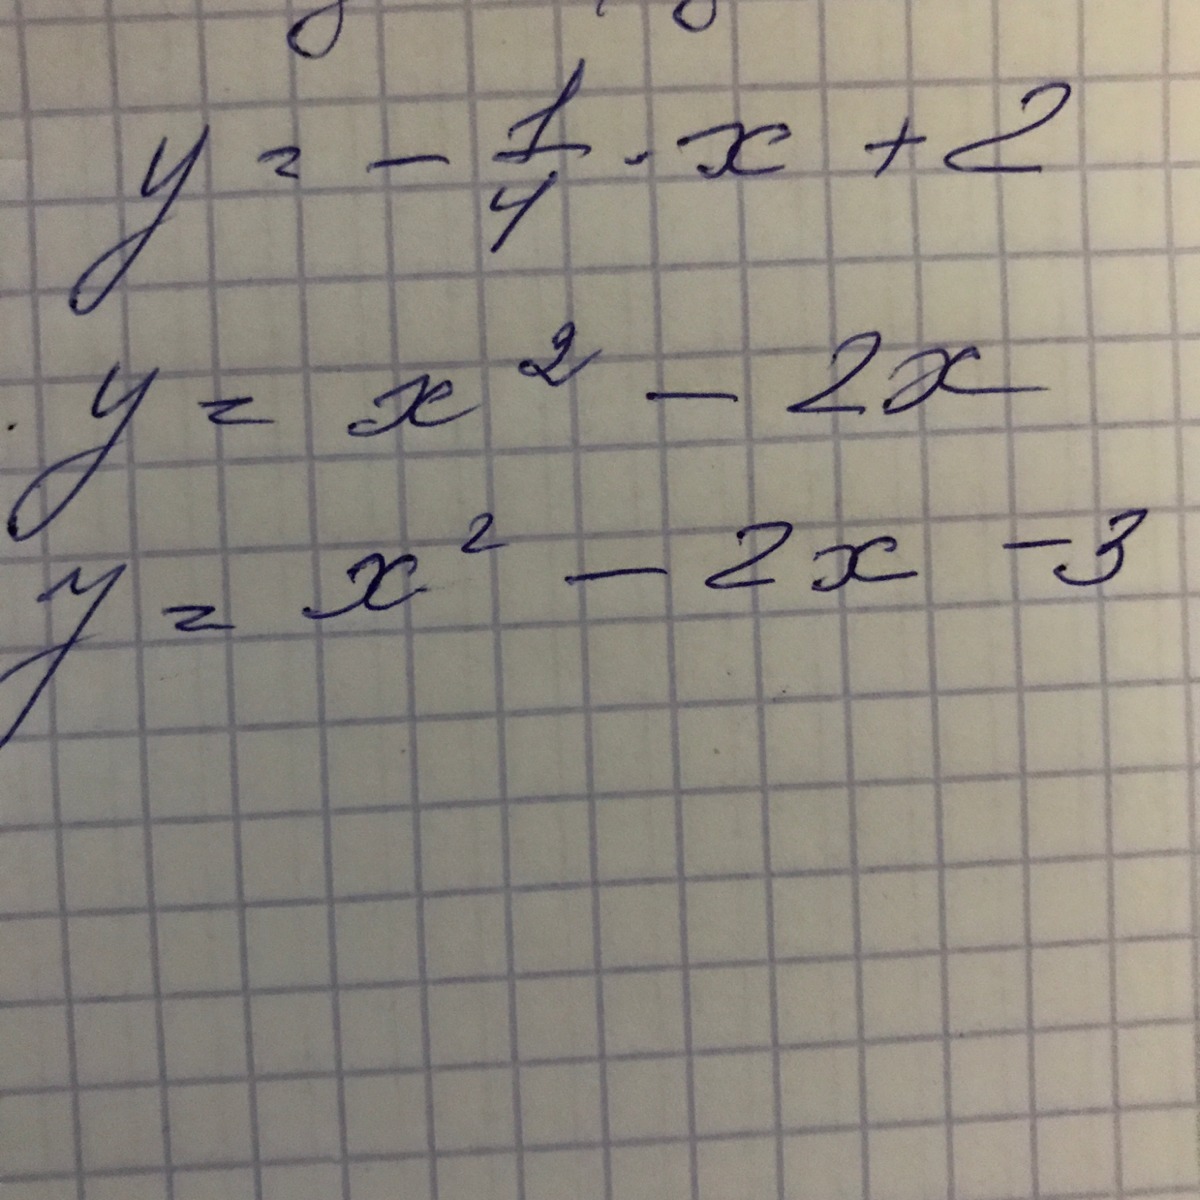 y = - 1/4 · x + 2
y = x² - 2x
y = x² - 2x - 3